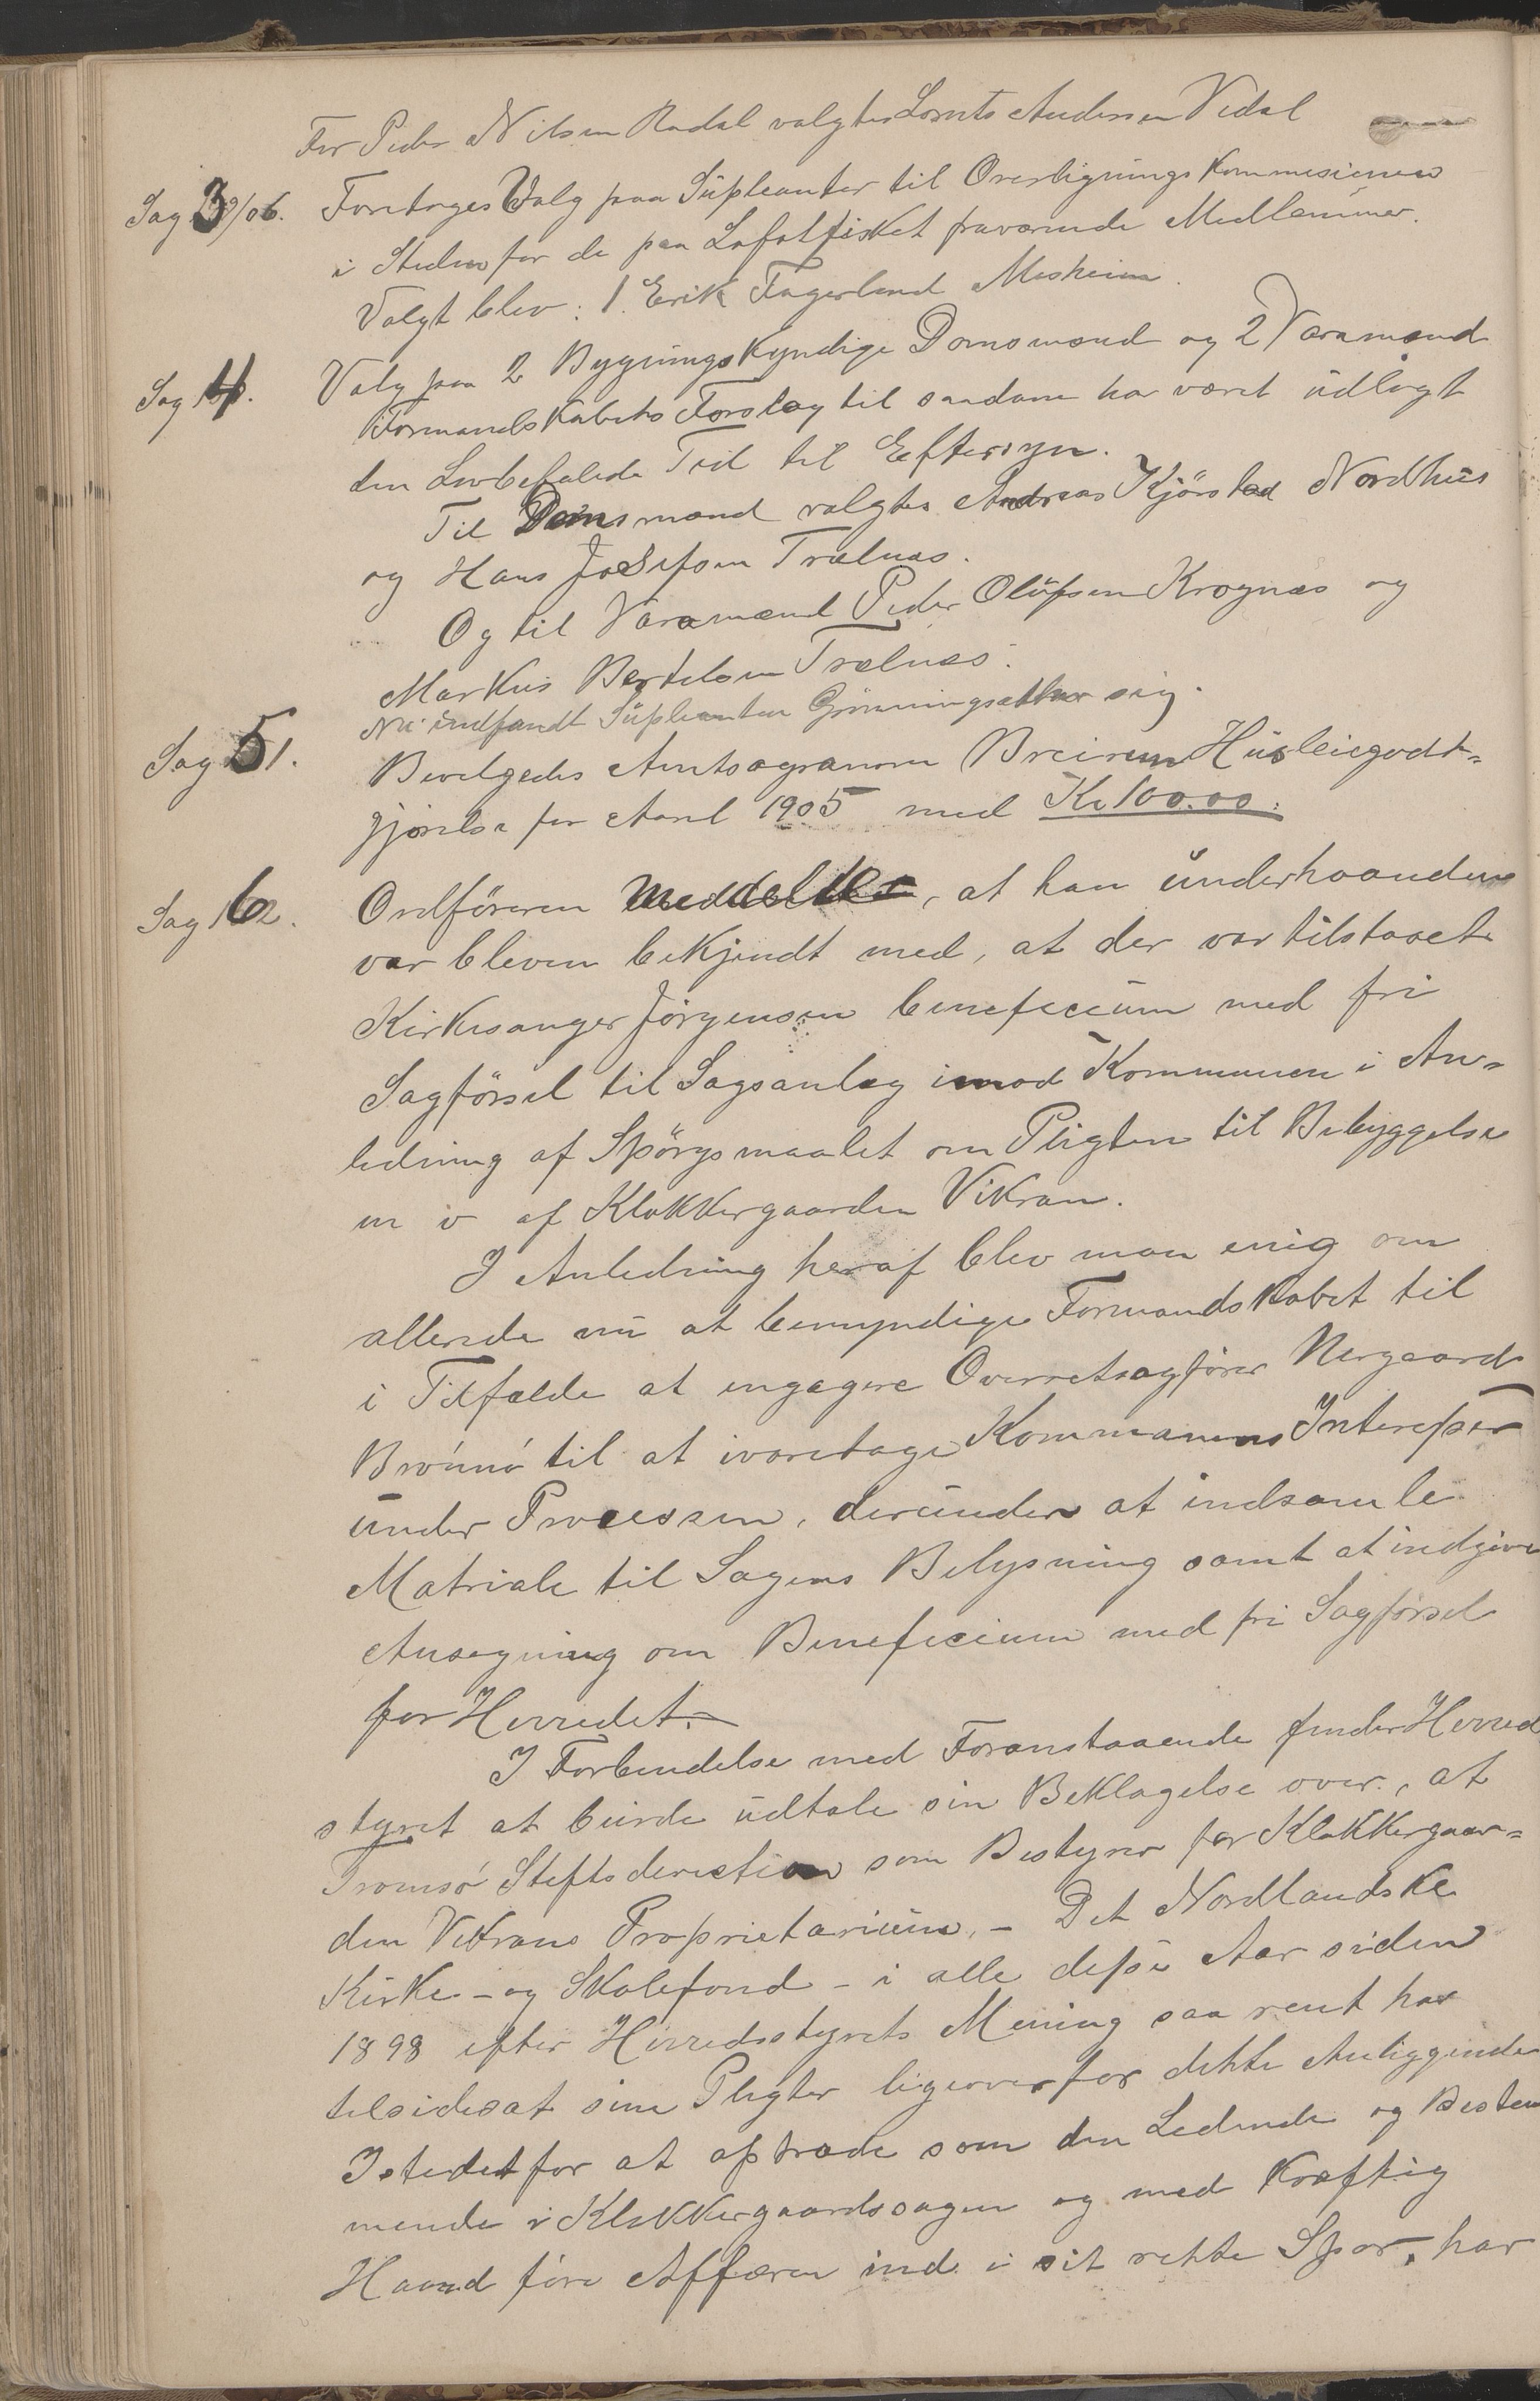 For Peder Nilsen Rødal valgtes Lorents Andersen Vedal
Sag 3/06. Foretoges Valg paa Supleanter til Overligningskommisionen
i Steden for de paa Lofotfisket fraværende Medlemmer.
Valgt blev: 1. Erik Fagerland Mosheim.
Sag 4. Valg paa 2 Bygningskyndige Domsmænd og 2 Varamænd
Formandskabets Forslag til saadane har været udlagt
den Lovbefalede Tid til Eftersyn.
Til Domsmænd valgtes Andreas Kjørstad Nordhus
og Hans Josefsen Trælnæs.
Og til Varamænd Peder Olufsen Krognæs og
Markus Bertelsen Trælnæs.
Nu indfandt Supleanten Grønningsæther sig.
Sag 51. Bevilgedes Amtsagronom Breirem Husleiegodt-
gjørelse for Aaret 1905 med Kr 100.00.
Sag 6. Ordføreren meddelte, at han underhaanden
var bleven bekjendt med, at der var tilstaaet
Kirkesanger Jørgensen beneficium med fri
Sagførsel til Sagsanlæg imod Kommunen i An-
ledning af Spørgsmaalet om Pligten til Bebyggelse
m v af Klokkergaarden Vikran.
I Anledning heraf blev man enig om
allerede nu at bemyndige Formandskabet til
i Tilfælde at engagere Overretsagfører Nergaard
Brønnø til at ivaretage Kommunens Interesser
under Processen, derunder at indsamle
Matriale til Sagens Belysning samt at indgive
Ansøgning om Beneficium med fri Sagførsel
for Herredet.
I Forbindelse med Foranstaaende finder Herred
styret at burde udtale sin Beklagelse over, at
Tromsø Stiftsderection som Bestyrer for Klokkergaar-
den Vikrans Proprietarium, - Det Nordlandske
Kirke- og Skolefond - i alle disse Aar siden
1898 efter Herredsstyrets Mening saa rent har
tilsidesat sine Pligter ligeoverfor dette Anliggende
Istedetfor at optræde som den Ledende og Bestem
mende i Klokkergaardssagen og med kræftig
Haand føre Affæren ind i sit rette Spor, har